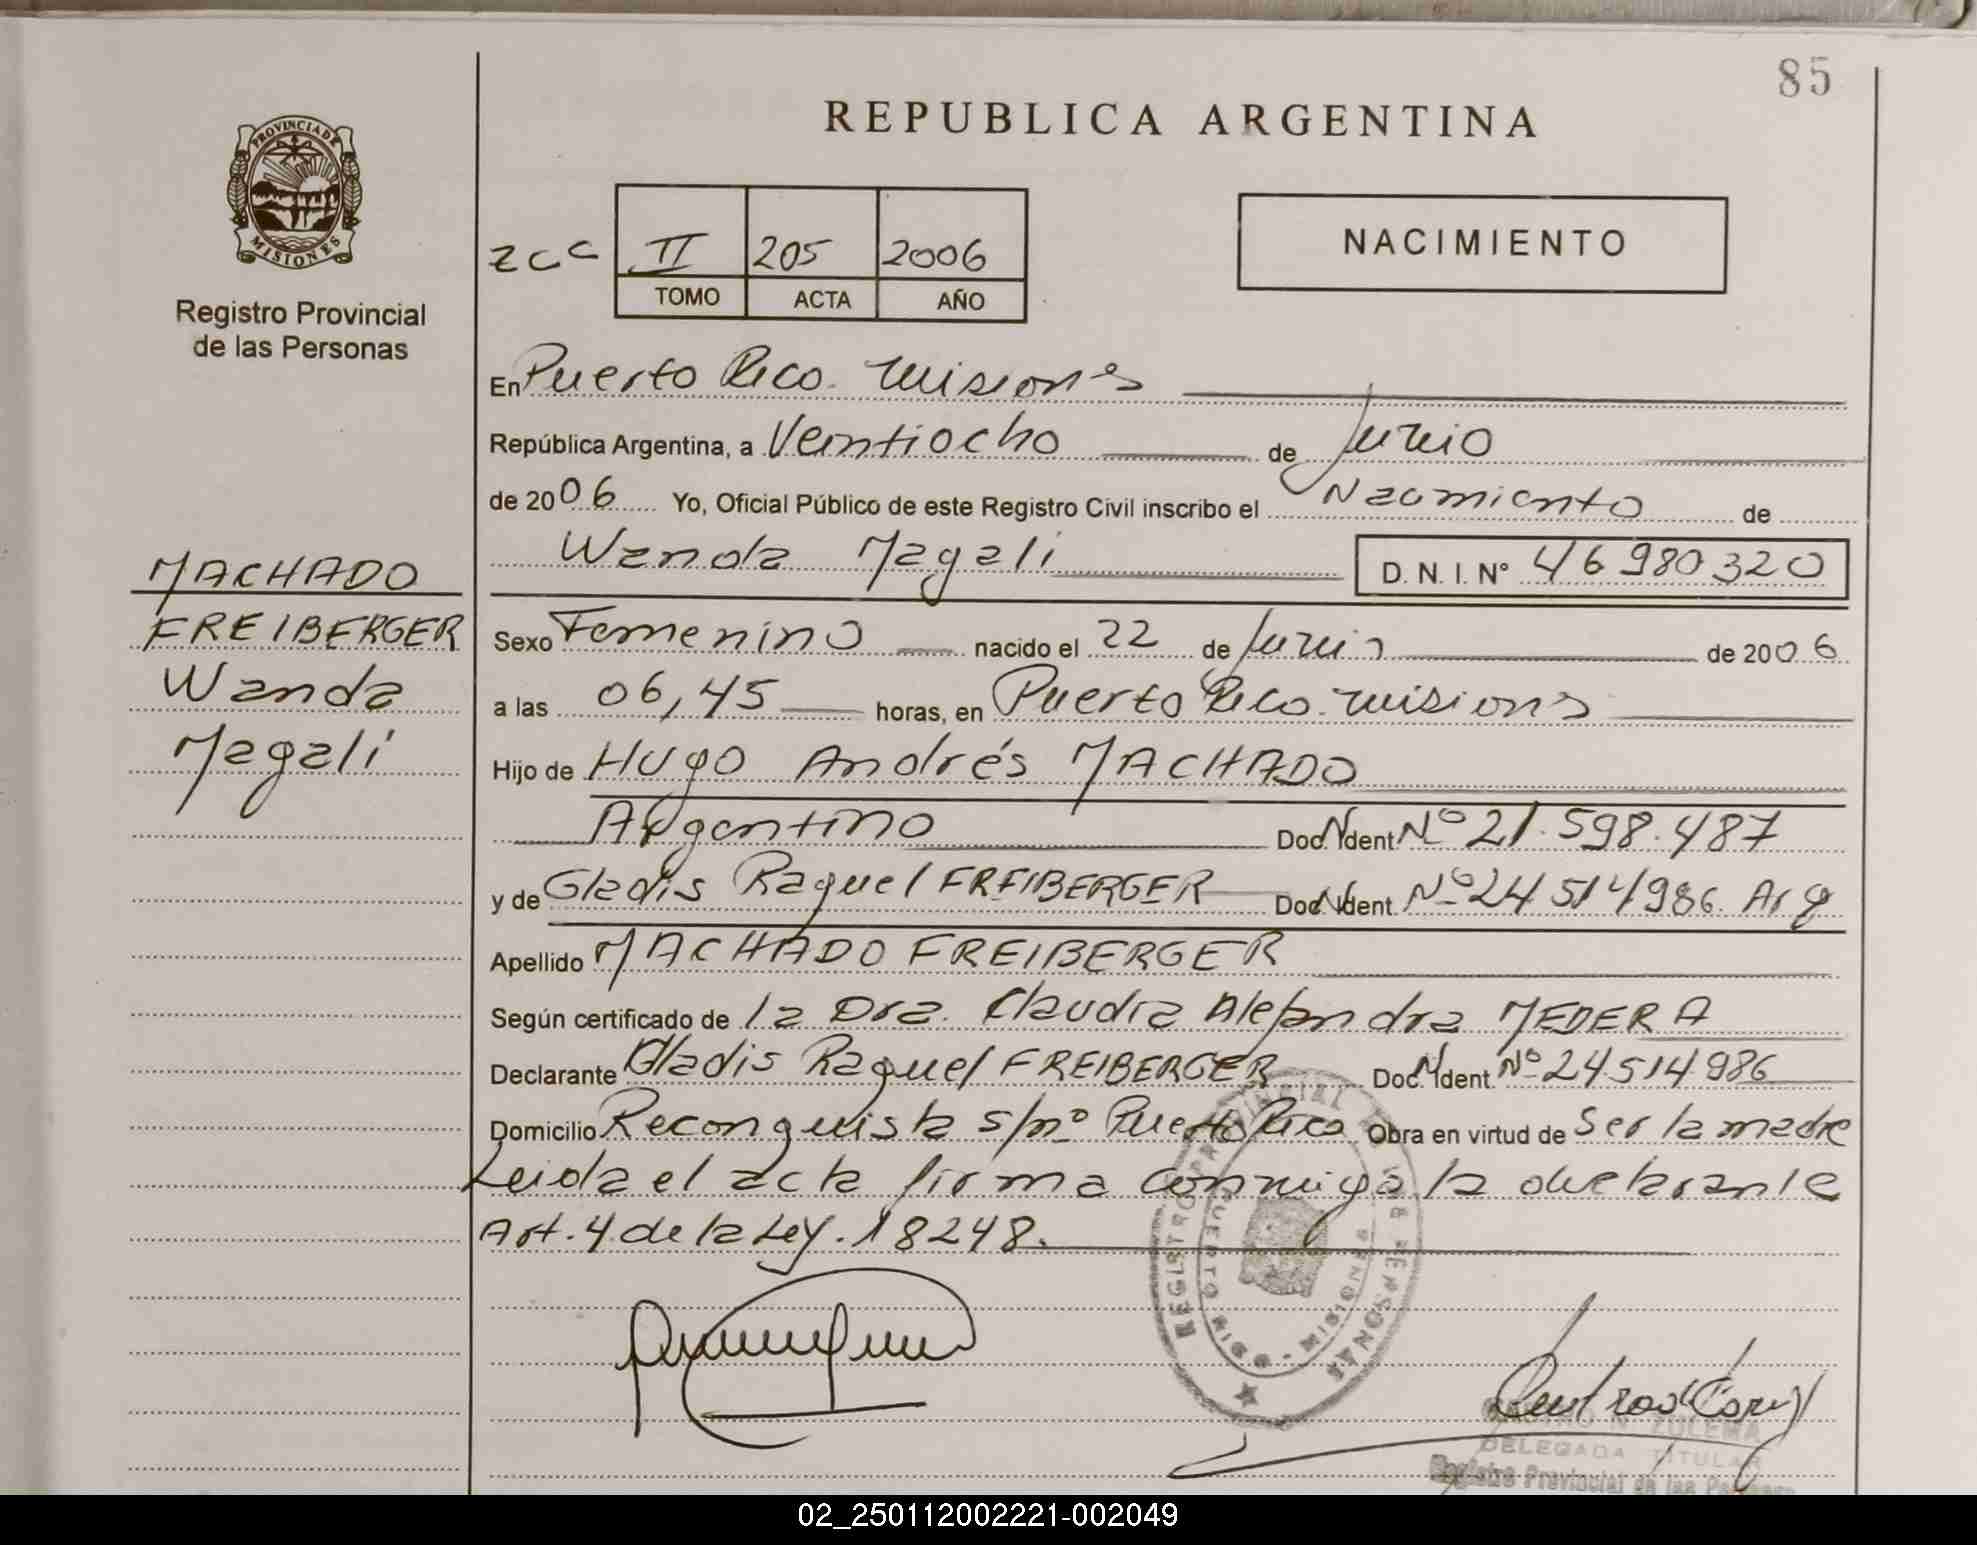 85
REPUBLICA ARGENTINA
PROVINCIA DE
MISIONES
Registro Provincial
de las Personas
zcc II 205 2006
TOMO ACTA AÑO
NACIMIENTO
En Puerto Rico. Misiones
República Argentina, a Veintiocho de Junio
de 2006 Yo, Oficial Público de este Registro Civil inscribo el Nacimiento de
Wanda Magali D. N. I. Nº 46980320
MACHADO
FREIBERGER
Wanda
Magali
Sexo Femenino nacido el 22 de Junio de 2006
a las 06,45 horas, en Puerto Rico. Misiones
Hijo de Hugo Andrés MACHADO
Argentino Doc. Ident Nº 21.598.487
y de Gladis Raquel FREIBERGER Doc. Ident. Nº 24514986. Arg
Apellido MACHADO FREIBERGER
Según certificado de la Dra. Claudia Alejandra MEDERA
Declarante Gladis Raquel FREIBERGER Doc. Ident. Nº 24514986
Domicilio Reconquista s/nº Puerto Rico Obra en virtud de Ser la madre
Leida el acta firma conmigo la declarante
Art. 4 de la Ley. 18248.
REGISTRO PROVINCIAL DE LAS PERSONAS
PUERTO RICO - MISIONES
N. ZULEMA
DELEGADA TITULAR
Registro Provincial de las Personas
02_250112002221-002049